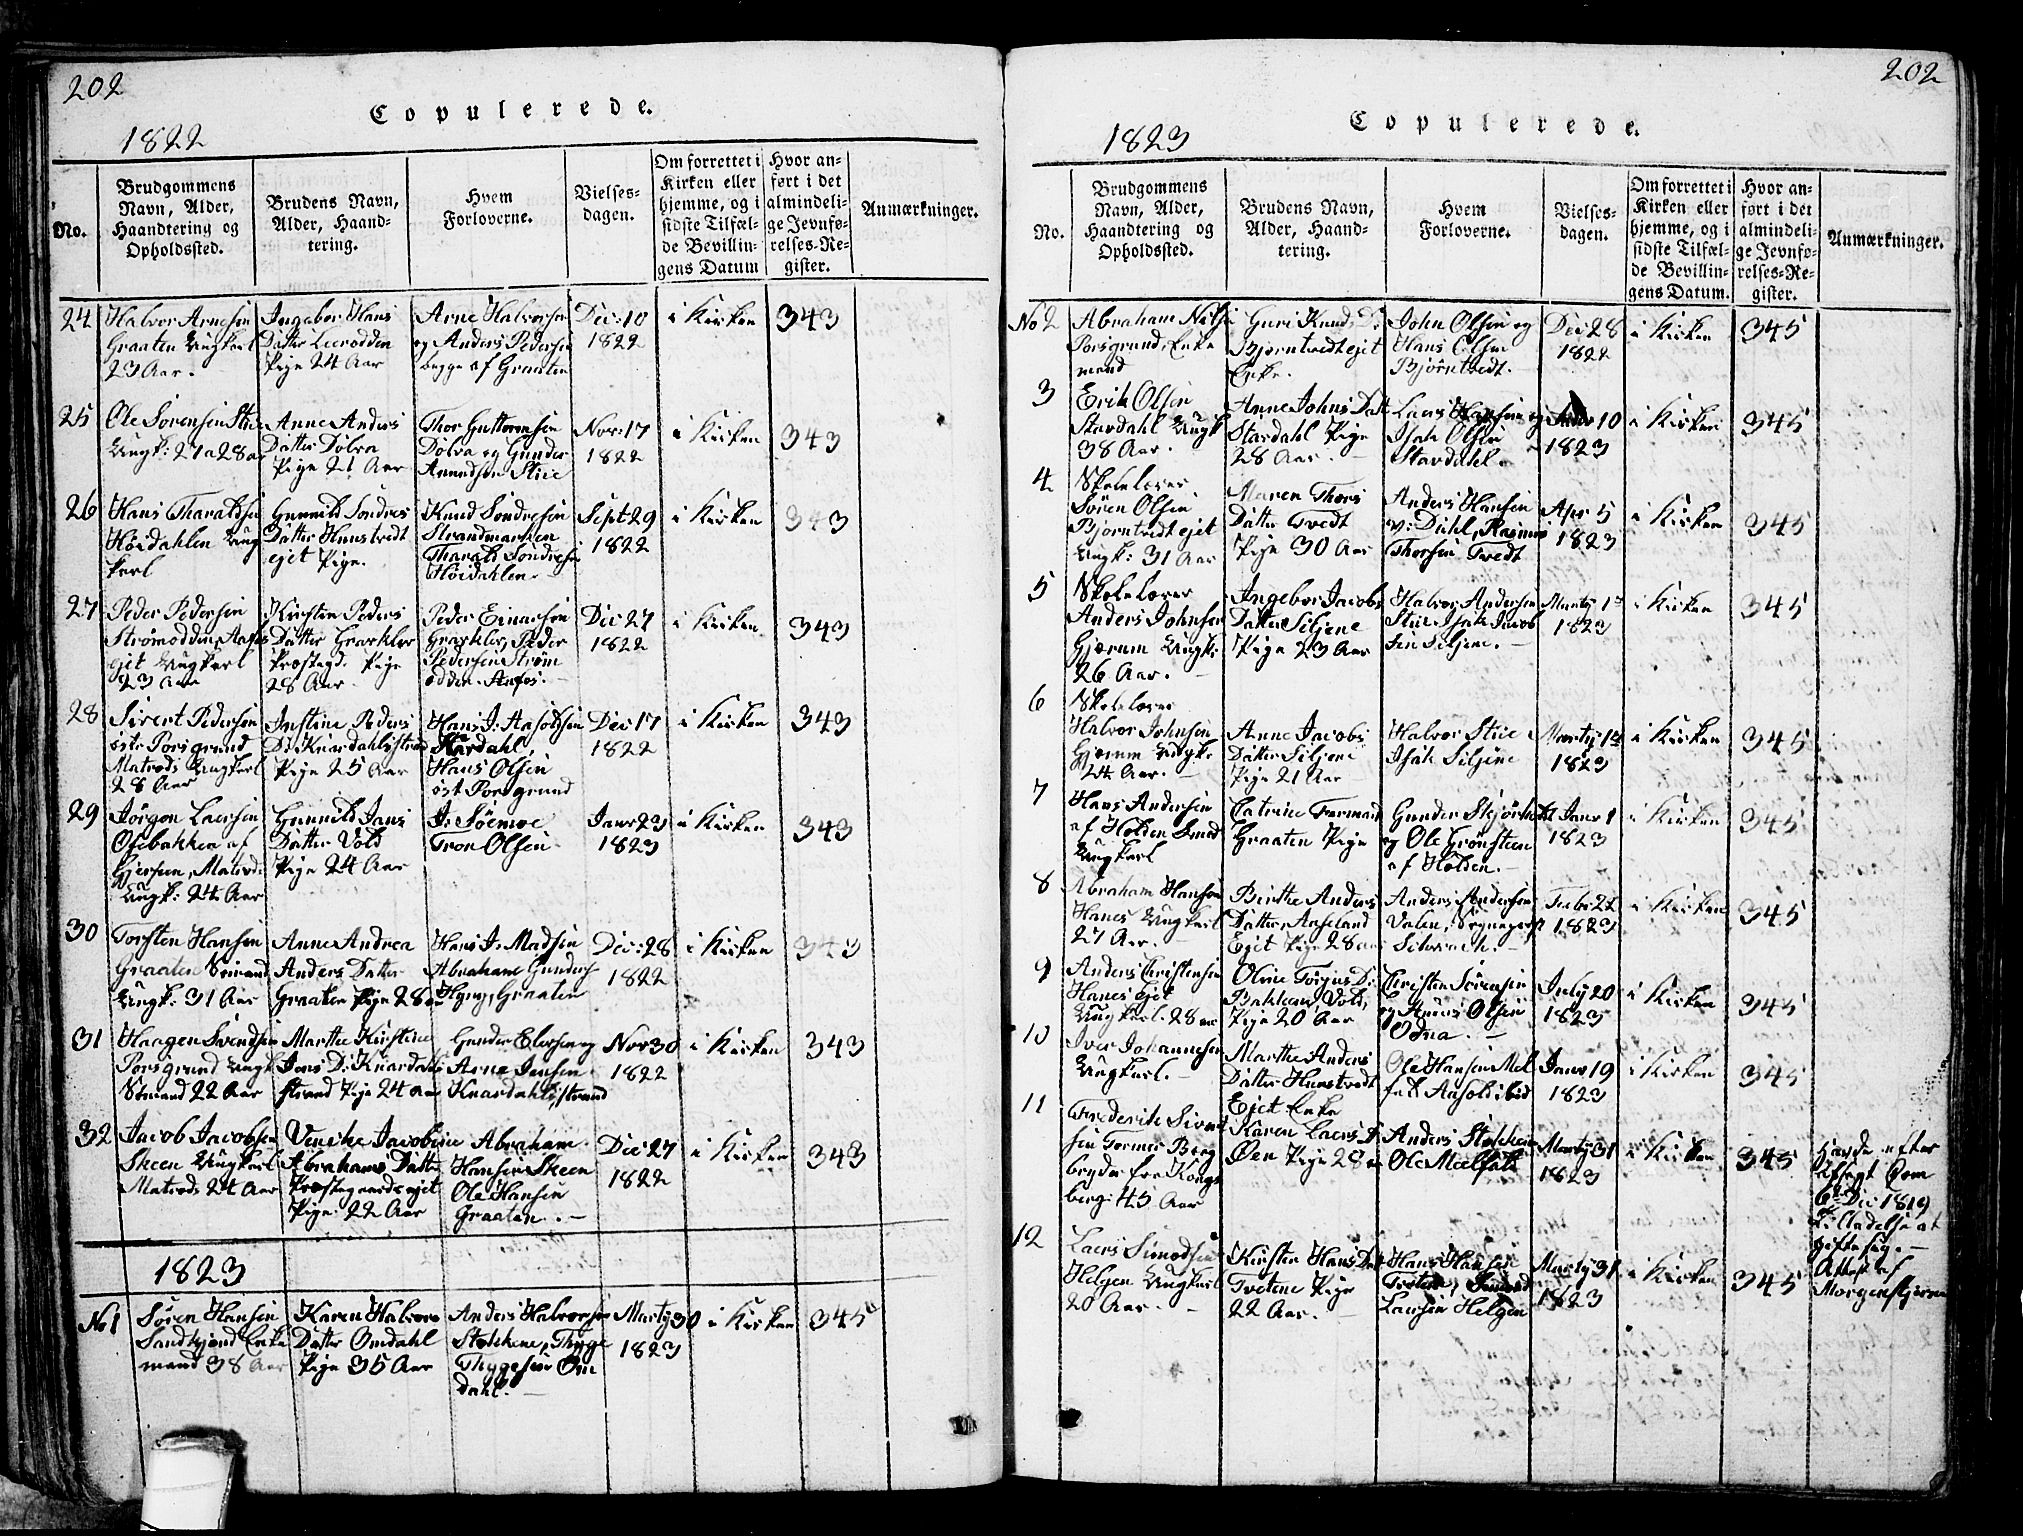 202
Copulerede.
1822
No.
Brudgommens
Navn, Alder,
Haandtering og
Opholdssted.
Brudens Navn,
Alder, Haand-
tering.
Hvem
Forloverne.
Vielses-
dagen.
Om forrettet i
Kirken eller
hjemme, og i
sidste Tilfæl-
de Bevillin-
gens Datum
Hvor an-
ført i det
almindeli-
ge Jevnfø-
relses-Re-
gister.
Anmærkninger.
24
Halvor Arnesen
Graaten Ungkarl
23 Aar.
Ingebor Hans
Datter Leerodden
Pige 24 Aar
Arne Halvorsen
og Anders Pedersen
begge af Graaten
Dec: 10
1822
i Kirken
343
25
Ole Sørensen Stie
Ungk: 27 a 28 aar
Anne Anders
Datter Dølva
Pige 21 Aar
Thor Guttormsen
Dølva og Gunder
Amundsen Stie
Nov: 17
1822
i Kirken
343
26
Hans Tharaldsen
Høidahlen Ung
karl
Gunnild Sondres
Datter Hunstvedt
ejet Pige.
Knud Sondresen
Strandmarken
Tharald Sondresen
Høidahlen
Sept 29
1822
i Kirken
343
27
Peder Pedersen
Strømodden
ejet Ungkarl
23 aar
Kirsten Peders
Datter
Præstegd. Pige
28 Aar
Peder Einarsen
Peder
Pedersen Strøm
odden
Dec: 27
1822
i Kirken
343
28
Sivert Pedersen
østr Porsgrund
Matros Ungkarl
28 Aar
Instine Peders
D: Knardahlsstrand
Pige 25 Aar
Hans J: Aasoldsen
Kardahl,
Hans Olsen
øst Porsgrund
Dec: 17
1822
i Kirken
343
29
Jørgen Laersen
Osebakken af
Gjersen, Matrod:
Ungk: 24 Aar
Gunnild Jans
Datter Vold
Pige 24 Aar
J: Søemoe
Tron Olsen
Janv 23
1823
i Kirken
343
30
Torsten Hansen
Graaten Sømand
Ungk: 31 Aar
Anne Andrea
Anders Datter
Graaten Pige 28 aar
Hans J: Madsen
Abraham Gunders
Graaten
Dec: 28
1822
i Kirken
343
31
Haagen Svendsen
Porsgrund Ungk
Sømand 22 Aar
Marthe Kirstine
Jens D: Knardahls
strand Pige 24 aar
Gunder Elersen og
Arne Jensen
Knardahlsstrand
Nov 30
1822
i Kirken
343
32
Jacob Jacobsen
Skeen Ungkarl
Matrod: 24 Aar
Venche Jacobine
Abrahams Datter
Præstegaards ejet
Pige 22 Aar
Abraham
Hansen Skeen
Ole Hansen
Graaten.
Dec 27
1822
i Kirken
343
1823
No 1
Søren Hansen
Sandhjønd Enke
mand 38 Aar
Karen Halvors
Datter Omdahl
Pige 35 Aar
Anders Halvorsen
Stokkene, Thyge
Thygesen Om
dahl.
Marty 30
1823
i Kirken
345
202
Copulerede.
1823
No.
Brudgommens
Navn, Alder,
Haandtering og
Opholdssted.
Brudens Navn,
Alder, Haand-
tering.
Hvem
Forloverne.
Vielses-
dagen.
Om forrettet i
Kirken eller
hjemme, og i
sidste Tilfæl-
de Bevillin-
gens Datum.
Hvor an-
ført i det
almindeli-
ge Jevnfø-
relses-Re-
gister.
Anmærkninger.
No 2
Abraham Nilsen
Porsgrund, Enke
mand
Guri Knuds D:
Bjørntvedt ejet
Enke.
John Olsen og
Hans Olsen
Bjørntvedt.
Dec 28
1822
i Kirken
345
3
Erik Olsen
Stavdahl Ungk
38 Aar.
Anne Johns Datt
Stavdahl Pige
28 Aar.
Laers Hansen og
Isak Olsen
Stavdahl.
10
1823
i Kirken
345
4
Skolelærer
Søren Olsen
Bjørntvedt ejet
Ungk: 31 Aar
Maren Thors
Datter Tvedt
Pige 30 Aar
Anders Hansen
v: Diehl, Rasmus
Thorsen Tvedt
Apr 5
1823
i Kirken
345
5
Skolelærer
Anders Johnsen
Gjærum Ungk:
26 Aar.
Ingebor Jacobs
Datter Siljene
Pige 23 Aar
Halvor Andersen
Stie Isak Jacob
sen Siljene.
Marty 1st
1823
i Kirken
345
6
Skolelærer
Halvor Johnsen
Gjærum Ungk:
24 Aar.
Anne Jacobs
Datter Siljene
Pige 21 Aar
Halvor Stie
Isak Siljene
Marty 1st
1823
i Kirken
345
7
Hans Andersen
af Holden Smed
Ungkarl
Catrine Forman
Graaten Pige
Gunder
og Ole Grønsteen
af Holden.
Janv 1
1823
i Kirken
345
8
Abraham Hansen
Hanes Ungkarl
27 Aar.
Birthe Anders
Datter Aaseland
Ejet Pige 28 aar
Anders Andersen
Valen, Sognepræst
Schwach.
Febr: 22
1823
i Kirken
345
9
Anders Christensen
Hanes ejet
Ungkarl. 28 aar
Oline Torjus D:
Bakken, Vold,
Pige 20 Aar
Christen Sørensen
og Olsen
Odna.
July 20
1823
i Kirken
345
10
Iver Johannesen
Ungkarl.
Marthe Anders
Datter Hunstvedt
Ejet Enke
Ole Hansen Mel
fald Aasold ibid
Janv 19
1823
i Kirken
345
11
Frederik Sivert
sen Former Berg
bryder fra Kongs
berg: 45 Aar
Karen Laers D
Øen Pige 28 a
Anders Stokken
Ole Mælfald
Marty 31
1823
i Kirken
345
Havde efter
Udsagt Dom
6te Dec: 1819
Tilladelse at
gifte sig.
Attest af
Morgenstjerne
12
Laers Simonsen
Helgen Ungkarl
20 Aar.
Kirsten Hans Datt
Tvetene Pige
22 Aar.
Hans Hansen
Tvetene, Simond
Laersen Helgen
Marty 31
1823
i Kirken
345